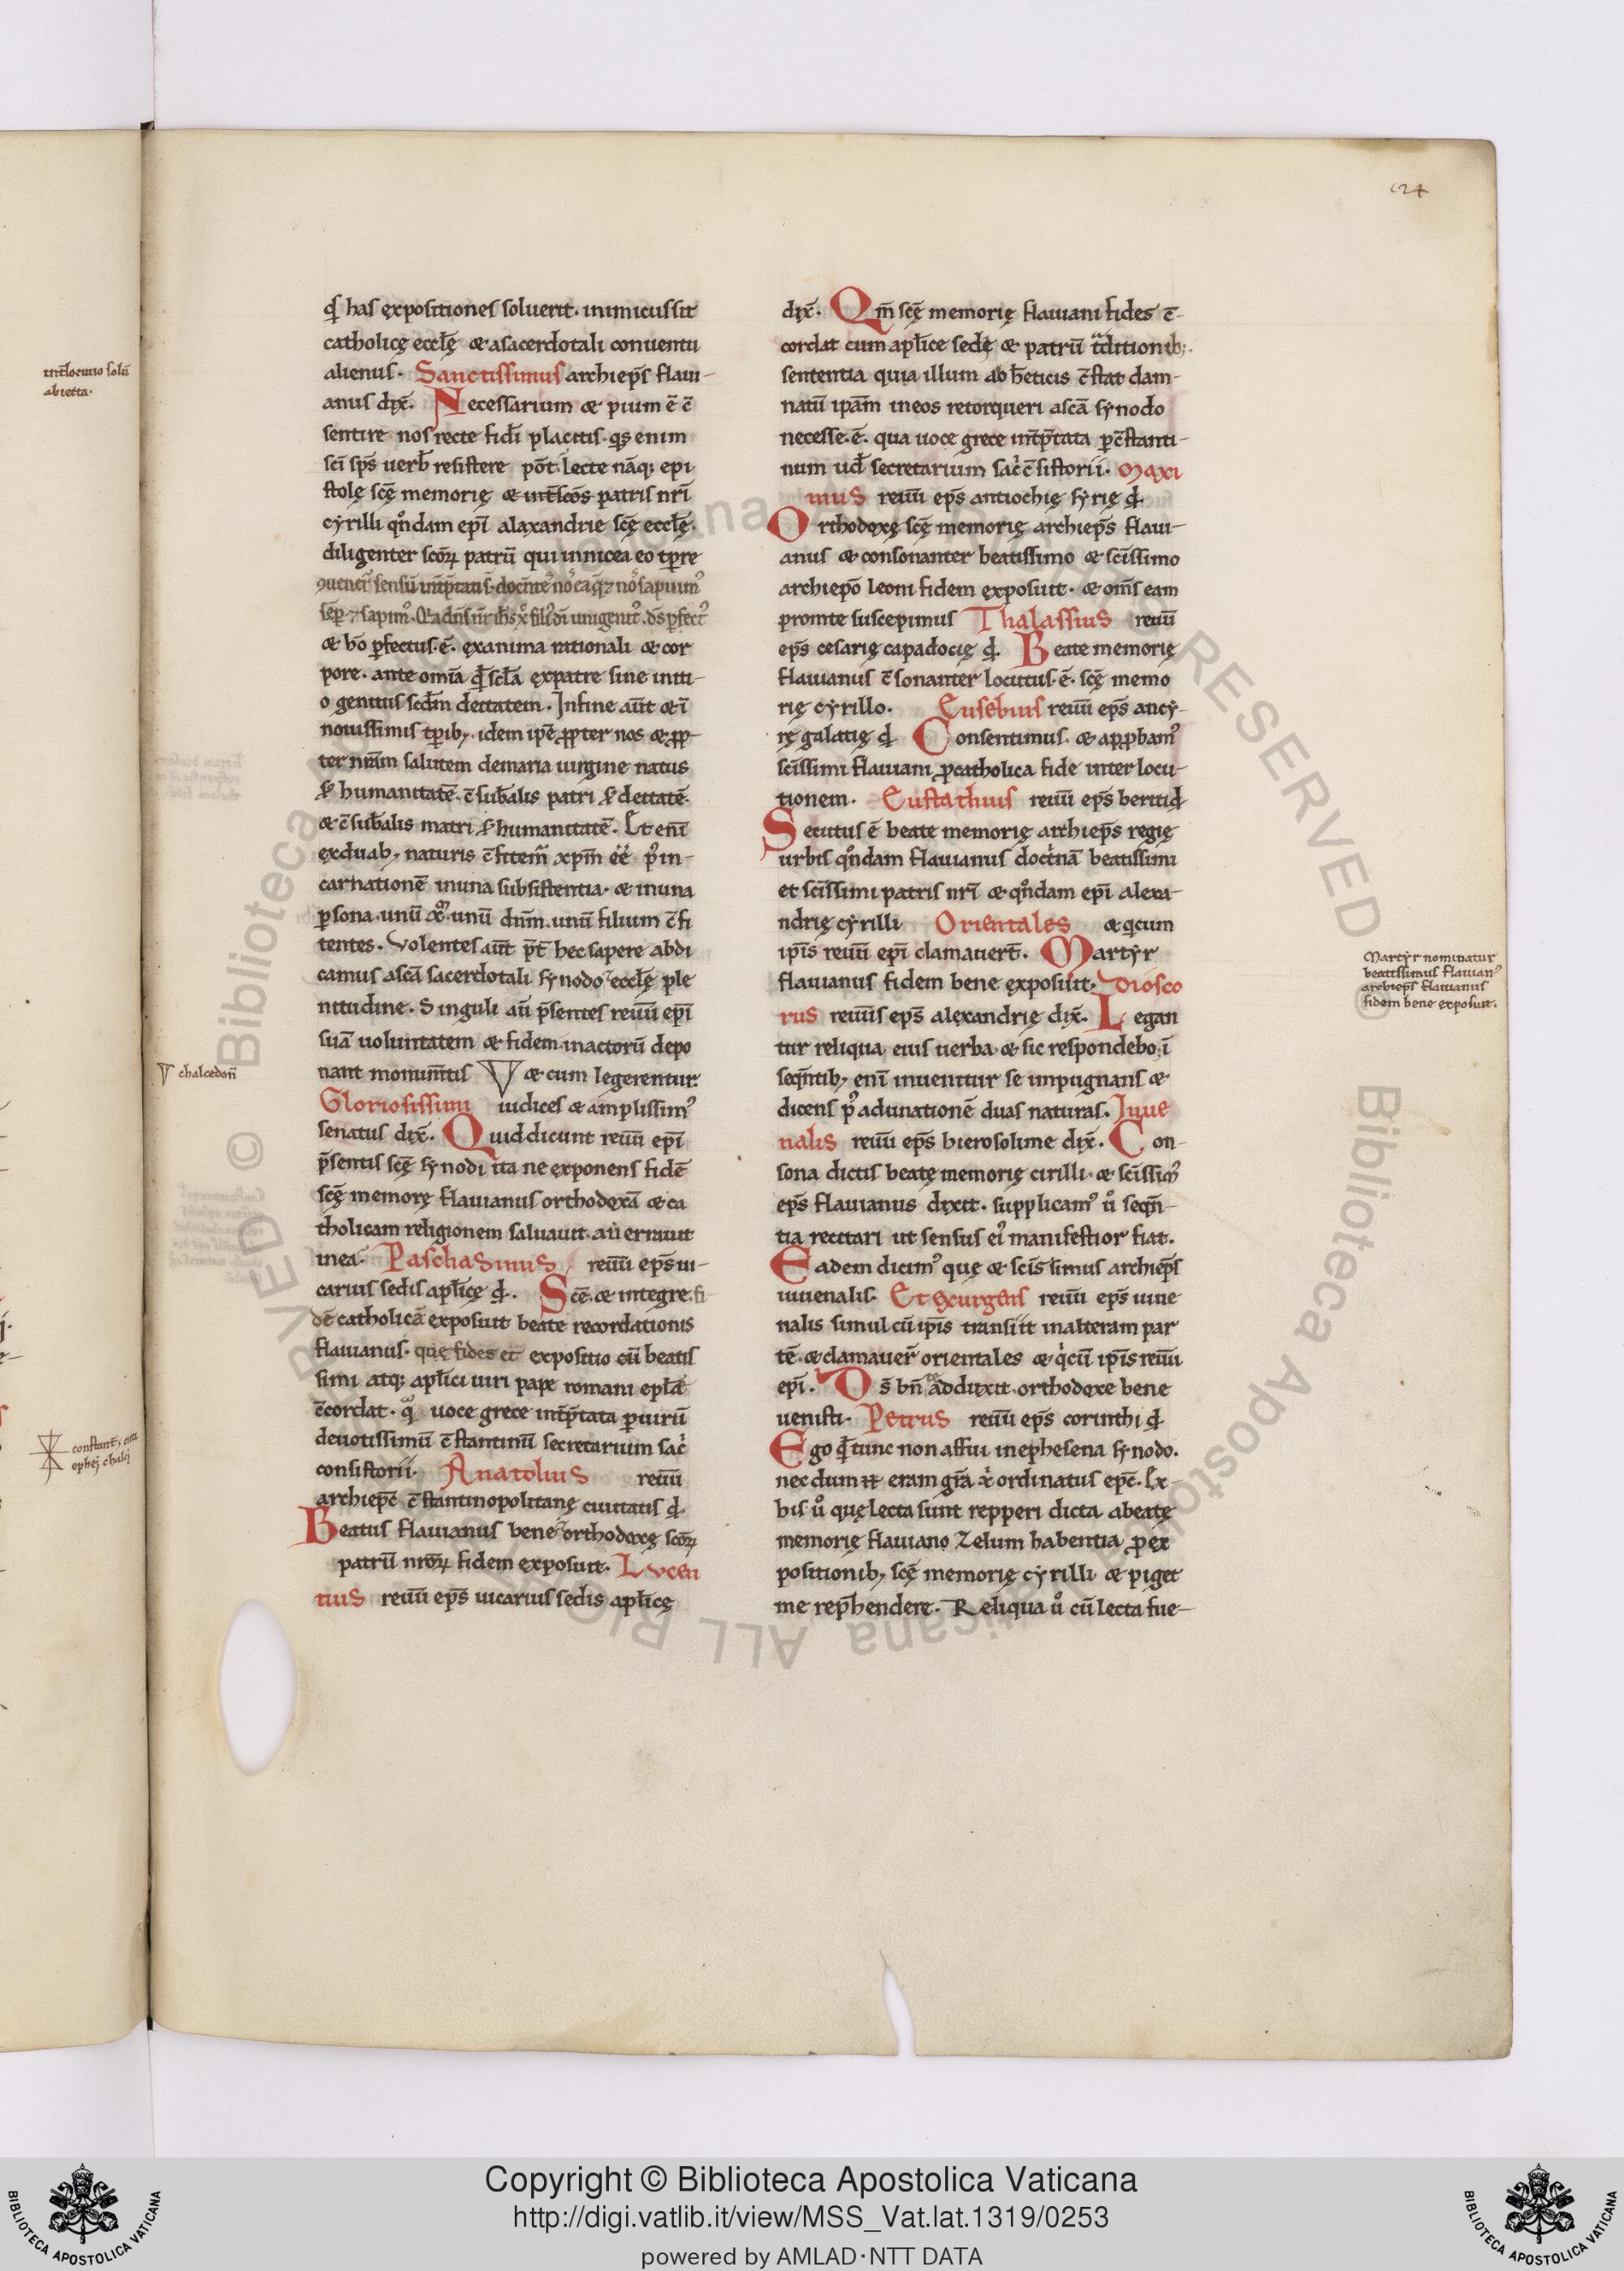 124
intˉlocutio solū
abiecta·
qđ has expositiones soluerit· inimicus sit
catholicę ecclę̄ & a sacerdotali conuentu
alienus· Sanctissimus archiep̄s flaui-
anus dix̄· Necessarium & pium ē c̄
sentire nos recte fidi placitis· q̄s enim
sc̄i sp̄s uerb̄ resistere pōt· Lecte nāq; epi
stolę sc̄ę memorię & patris nrī
cyrilli qn̄dam ep̄i alaxandrie sc̄ę ecclę̄·
diligenter sc̄oꝝ patrū qui in nicea eo tp̄re
sēp & sapimꝰ· Q̄a dn̄s nr̄ ih̄s xp̄ filiꝰ dī unigenitꝰ· ds̄ p̄fectꝰ
& hō p̄fectus· ē· ex anima rationali & cor
pore· ante omīa qđ scła ex patre sine initi-
o genitus scd̄m deitatem· In fine aūt & ī
nouissimis tp̄ib; idem ip̄e ꝓpter nos & ꝓp-
ter nr̄am salutem de maria uirgine natus
scđ humanitatē· c̄sub̄alis patri scđ deitatē·
& c̄sub̄alis matri scđ humanitatē· Et enī
ex duab; naturis c̄fitem̄ xp̄m ēē pꝰ in-
carnationē in una subsistentia· & in una
ꝑsona· unū xp̄m· unū dn̄m· unū filium c̄fi
tentes· Volentes aūt p̄t hec sapere abdi
camus a scā sacerdotali synodo· ecclę̄ ple
nitudine· Singuli aū p̄sentes reuūi ep̄i
suā uoluntatem & fidem in actorū depo
nant monum̄tis & cum legerentur·
chalcedon̄
Gloriosissimi iudices & amplissimꝰ
senatus dix̄· Quid dicunt reuūi ep̄i
p̄sentis sc̄ę synodi ita ne exponens fidē
sc̄ę memorę flauianus orthodoxā & ca
tholicam religionem saluauit· aū errauit
in ea· Paschasinus reuūi ep̄s ui-
carius sedis apl̄icę đ· Sc̄e· & integre· fi
dē catholicā exposuit beate recordationis
flauianus· que fides et expositio cū beatis
simi atq; apl̄ici uiri pape romani epl̄a
c̄cordat· qꝰ uoce grece intp̄tata ꝑ uirū
deuotissimū c̄stantinū secretarium sac̄
constant; cira
ephej chalcj
consistorii· Anatolius reuūi
archiep̄c c̄stantinopolitanę ciuitatis đ·
Beatus flauianus bene & orthodoxę sc̄oꝝ
patrū nr̄oꝝ fidem exposuit· Lucen
tius reuūi ep̄s uicarius sedis apl̄icę
dix̄· Qm̄ sc̄ę memorię flauiani fides c̄-
cordat cum apl̄ice sedę & patrū t̄ditionib;·
sententia quia illum ab h̄eticis c̄stat dam-
natū ipām in eos retorqueri a scā synodo
necesse· ē· qua uoce grece intp̄tata ꝑ c̄stanti-
num ud̄ secretarium sac̄ c̄sistorii· Maxi
mus reuūi ep̄s antiochię syrię đ·
Orthodoxę sc̄ę memorię archiep̄s flaui-
anus & consonanter beatissimo & sc̄issimo
archiepō leoni fidem exposuit· & om̄s eam
promte suscepimus Thalassius reuūi
ep̄s cesarię capadocię đ· Beate memorię
flauianus c̄sonanter locutus· ē· sc̄ę memo
rię cyrillo· Eusebius reuūi ep̄s ancy-
rę galatię đ Consentimus· & apꝓbamꝰ
sc̄issimi flauiani ꝓ catholica fide interlocu-
tionem· Eustathius reuūi ep̄s beriti đ
Secutus ē beate memorię archiep̄s regię
urbis qn̄dam flauianus doct̄nā beatissimi
et sc̄issimi patris nrī & qn̄dam ep̄i alexa-
ndrię cyrilli Orientales & q̄ cum
ip̄is reuūi ep̄i clamauert̄· Martyr
Martyr nominatur
beatissimus flauianꝰ
archiep̄s flauianus
fidem bene exposuit·
flauianus fidem bene exposuit· Diosco
rus reuūis ep̄s alexandrię dix̄· Legan
tur reliqua eius uerba· & sic respondebo· ī
seqn̄tib; enī inuenitur se inpugnans &
dicens pꝰ adunationē duas naturas· Iuue
nalis reuūi ep̄s hierosolime dix̄· Con-
sona dictis beatę memorię cirilli· & sc̄issimꝰ
ep̄s flauianus dixit· supplicamꝰ ū seqn̄-
tia recitari ut sensus eiꝰ manifestior fiat·
Eadem dicimꝰ quę & sc̄issimus archiep̄s
iuuenalis· Et exurgens reuūi ep̄s iuue
nalis simul cū ip̄is transiit in alteram par
tē· & clamauer̄ orientales & q̄cū ip̄is reuūi
ep̄i· Ds̄ bn̄ te adduxit· orthodoxe bene
uenisti· Petrus reuūi ep̄s corinthi đ
Ego qđ tunc non affui in ephesena synodo·
nec dum eram grā xp̄i ordinatus ep̄c· Ex-
his ū quę lecta sunt repperi dicta a beatę
memorię flauiano zelum habentia ꝓ ex
positionib; sc̄ę memorię cyrilli & piget
me rep̄hendere· Reliqua ū cū lecta fue-
Copyright © Biblioteca Apostolica Vaticana
http://digi.vatlib.it/view/MSS_Vat.lat.1319/0253
powered by AMLAD·NTT DATA
BIBLIOTECA APOSTOLICA VATICANA
BIBLIOTECA APOSTOLICA VATICANA